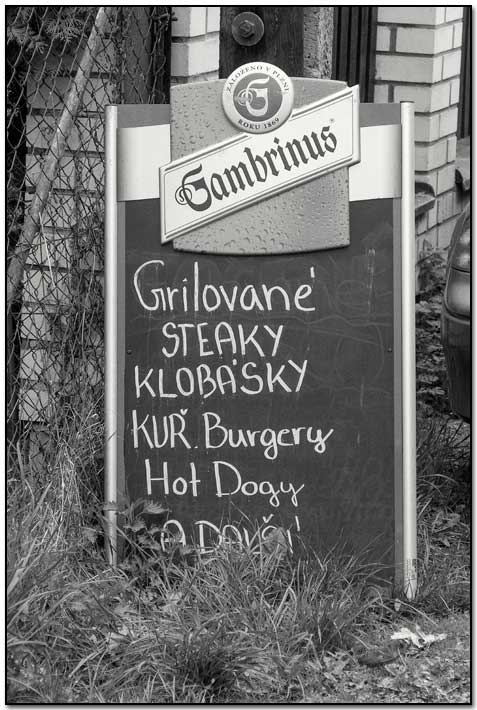 ZALOŽENO V PLZNI
G
ROKU 1869
Gambrinus
Grilované
STEAKY
KLOBÁSKY
KUŘ. Burgery
Hot Dogy
A DALŠÍ